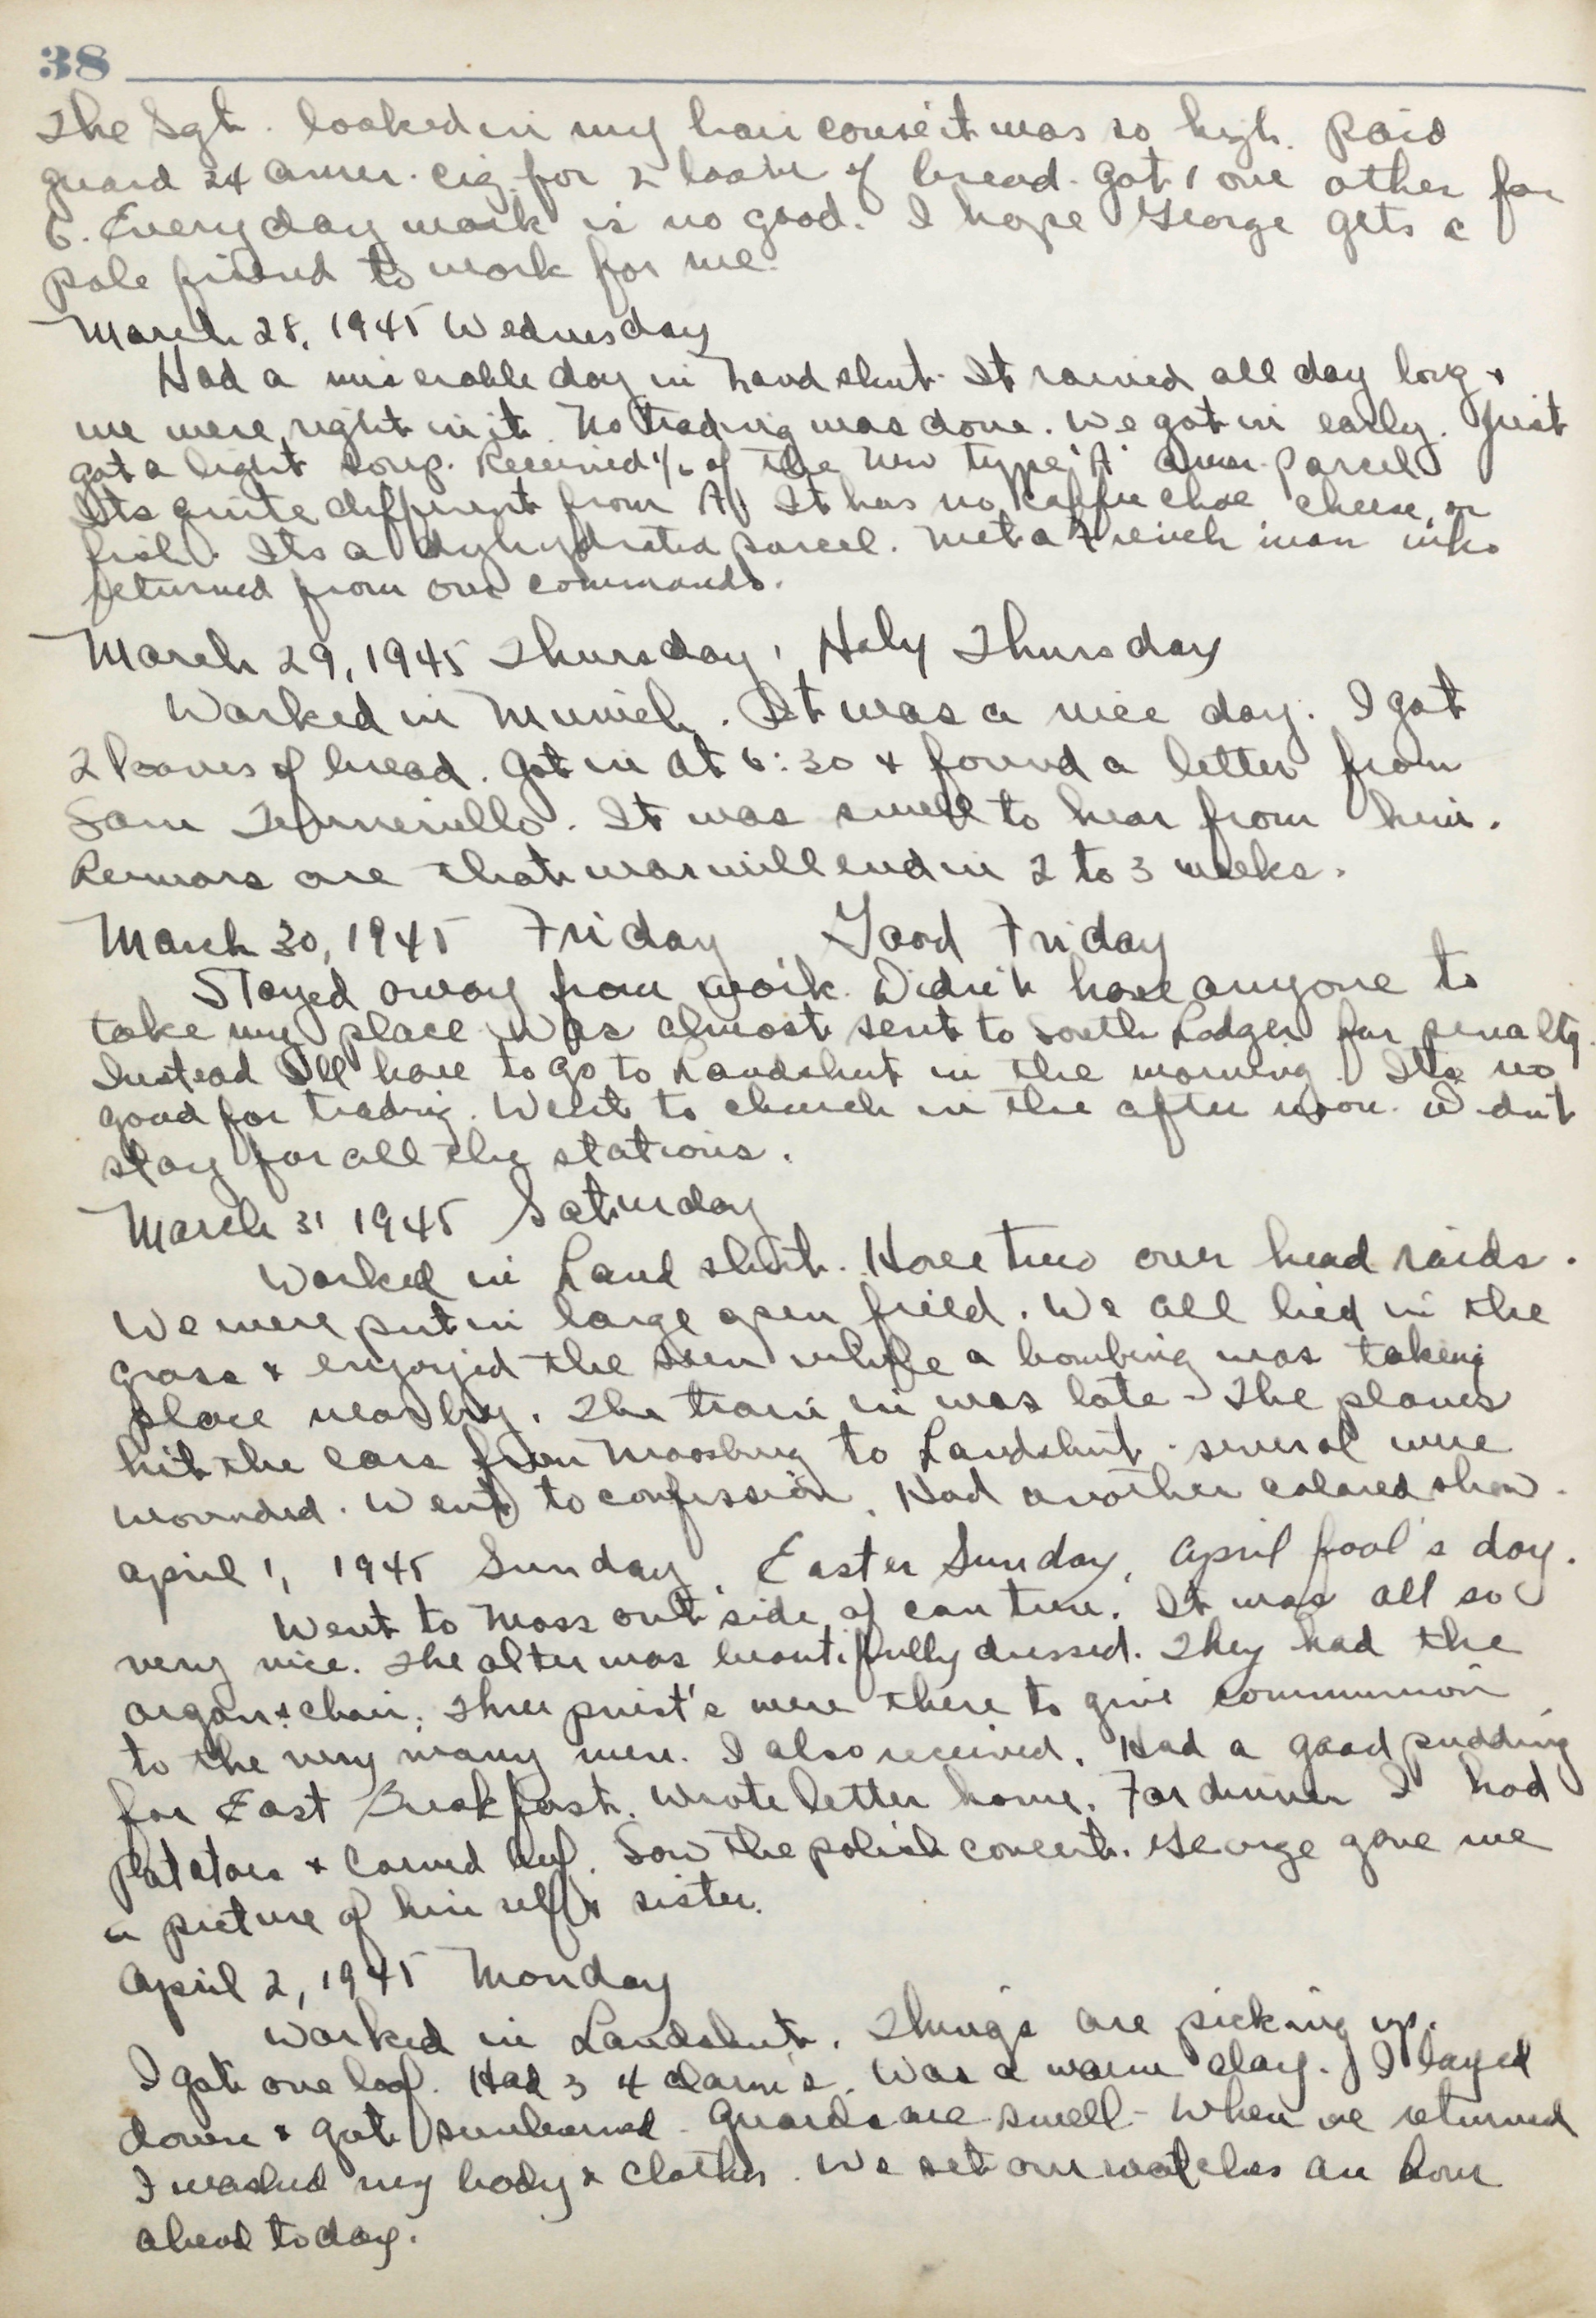 38
The Sgt. looked in my hair couse it was so high. Paid
guard 24 amer. cig. for 2 loave of bread. Got 1 one other for
6. Everyday work is no good. I hope George gets a
pole friend to work for me.
March 28, 1945 Wednesday
Had a miserable day in Landshut. It rained all day long &
we were right in it. No trading was done. We got in early. Just
got a light soup. Received 1/6 of the new type "A" amer. parcel
Its quite different from A. It has no coffee choc cheese, or
fish. Its a dyhydrated parcel. Met a French man who
returned from our commando.
March 29, 1945 Thursday, Holy Thursday
Worked in Munich. It was a nice day. I got
2 loaves of bread. Got in at 6:30 & found a letter from
Sam. It was swell to hear from him.
Rumors are that war will end in 2 to 3 weeks.
March 30, 1945 Friday Good Friday
Stayed away from work. Didn't have anyone to
take my place. Was almost sent to South Lodger for penalty.
Instead I'll have to go to Landshut in the morning. Its no
good for trading. Went to church in the after noon. Didn't
stay for all the stations.
March 31 1945 Saturday
Worked in Land shut. Have two over head raids.
We were put in large open field. We all lied in the
grass & enjoyed the sun while a bombing was taking
place near by. The train in was late - The planes
hit the cars from Moosburg to Landshut - several were
wounded. Went to confession. Had another colored show.
April 1, 1945 Sunday, Easter Sunday, April fool's day.
Went to Mass out side of canteen. It was all so
very nice. The alter was beautifully dressed. They had the
organ & choir. Three priest's were there to give communion
to the very many men. I also received. Had a good pudding
for East Breakfast. Wrote letter home. For dinner I had
potatoes & corned beef. Saw the polish concert. George gave me
a picture of him self & sister.
April 2, 1945 Monday
Worked in Landshut. Things are picking up.
I got one loaf. Had 3 4 alarm's. Was a warm day. I layed
down & got sunburned. Guards are swell - When we returned
I washed my body & clothes. We set our watches an hour
ahead today.